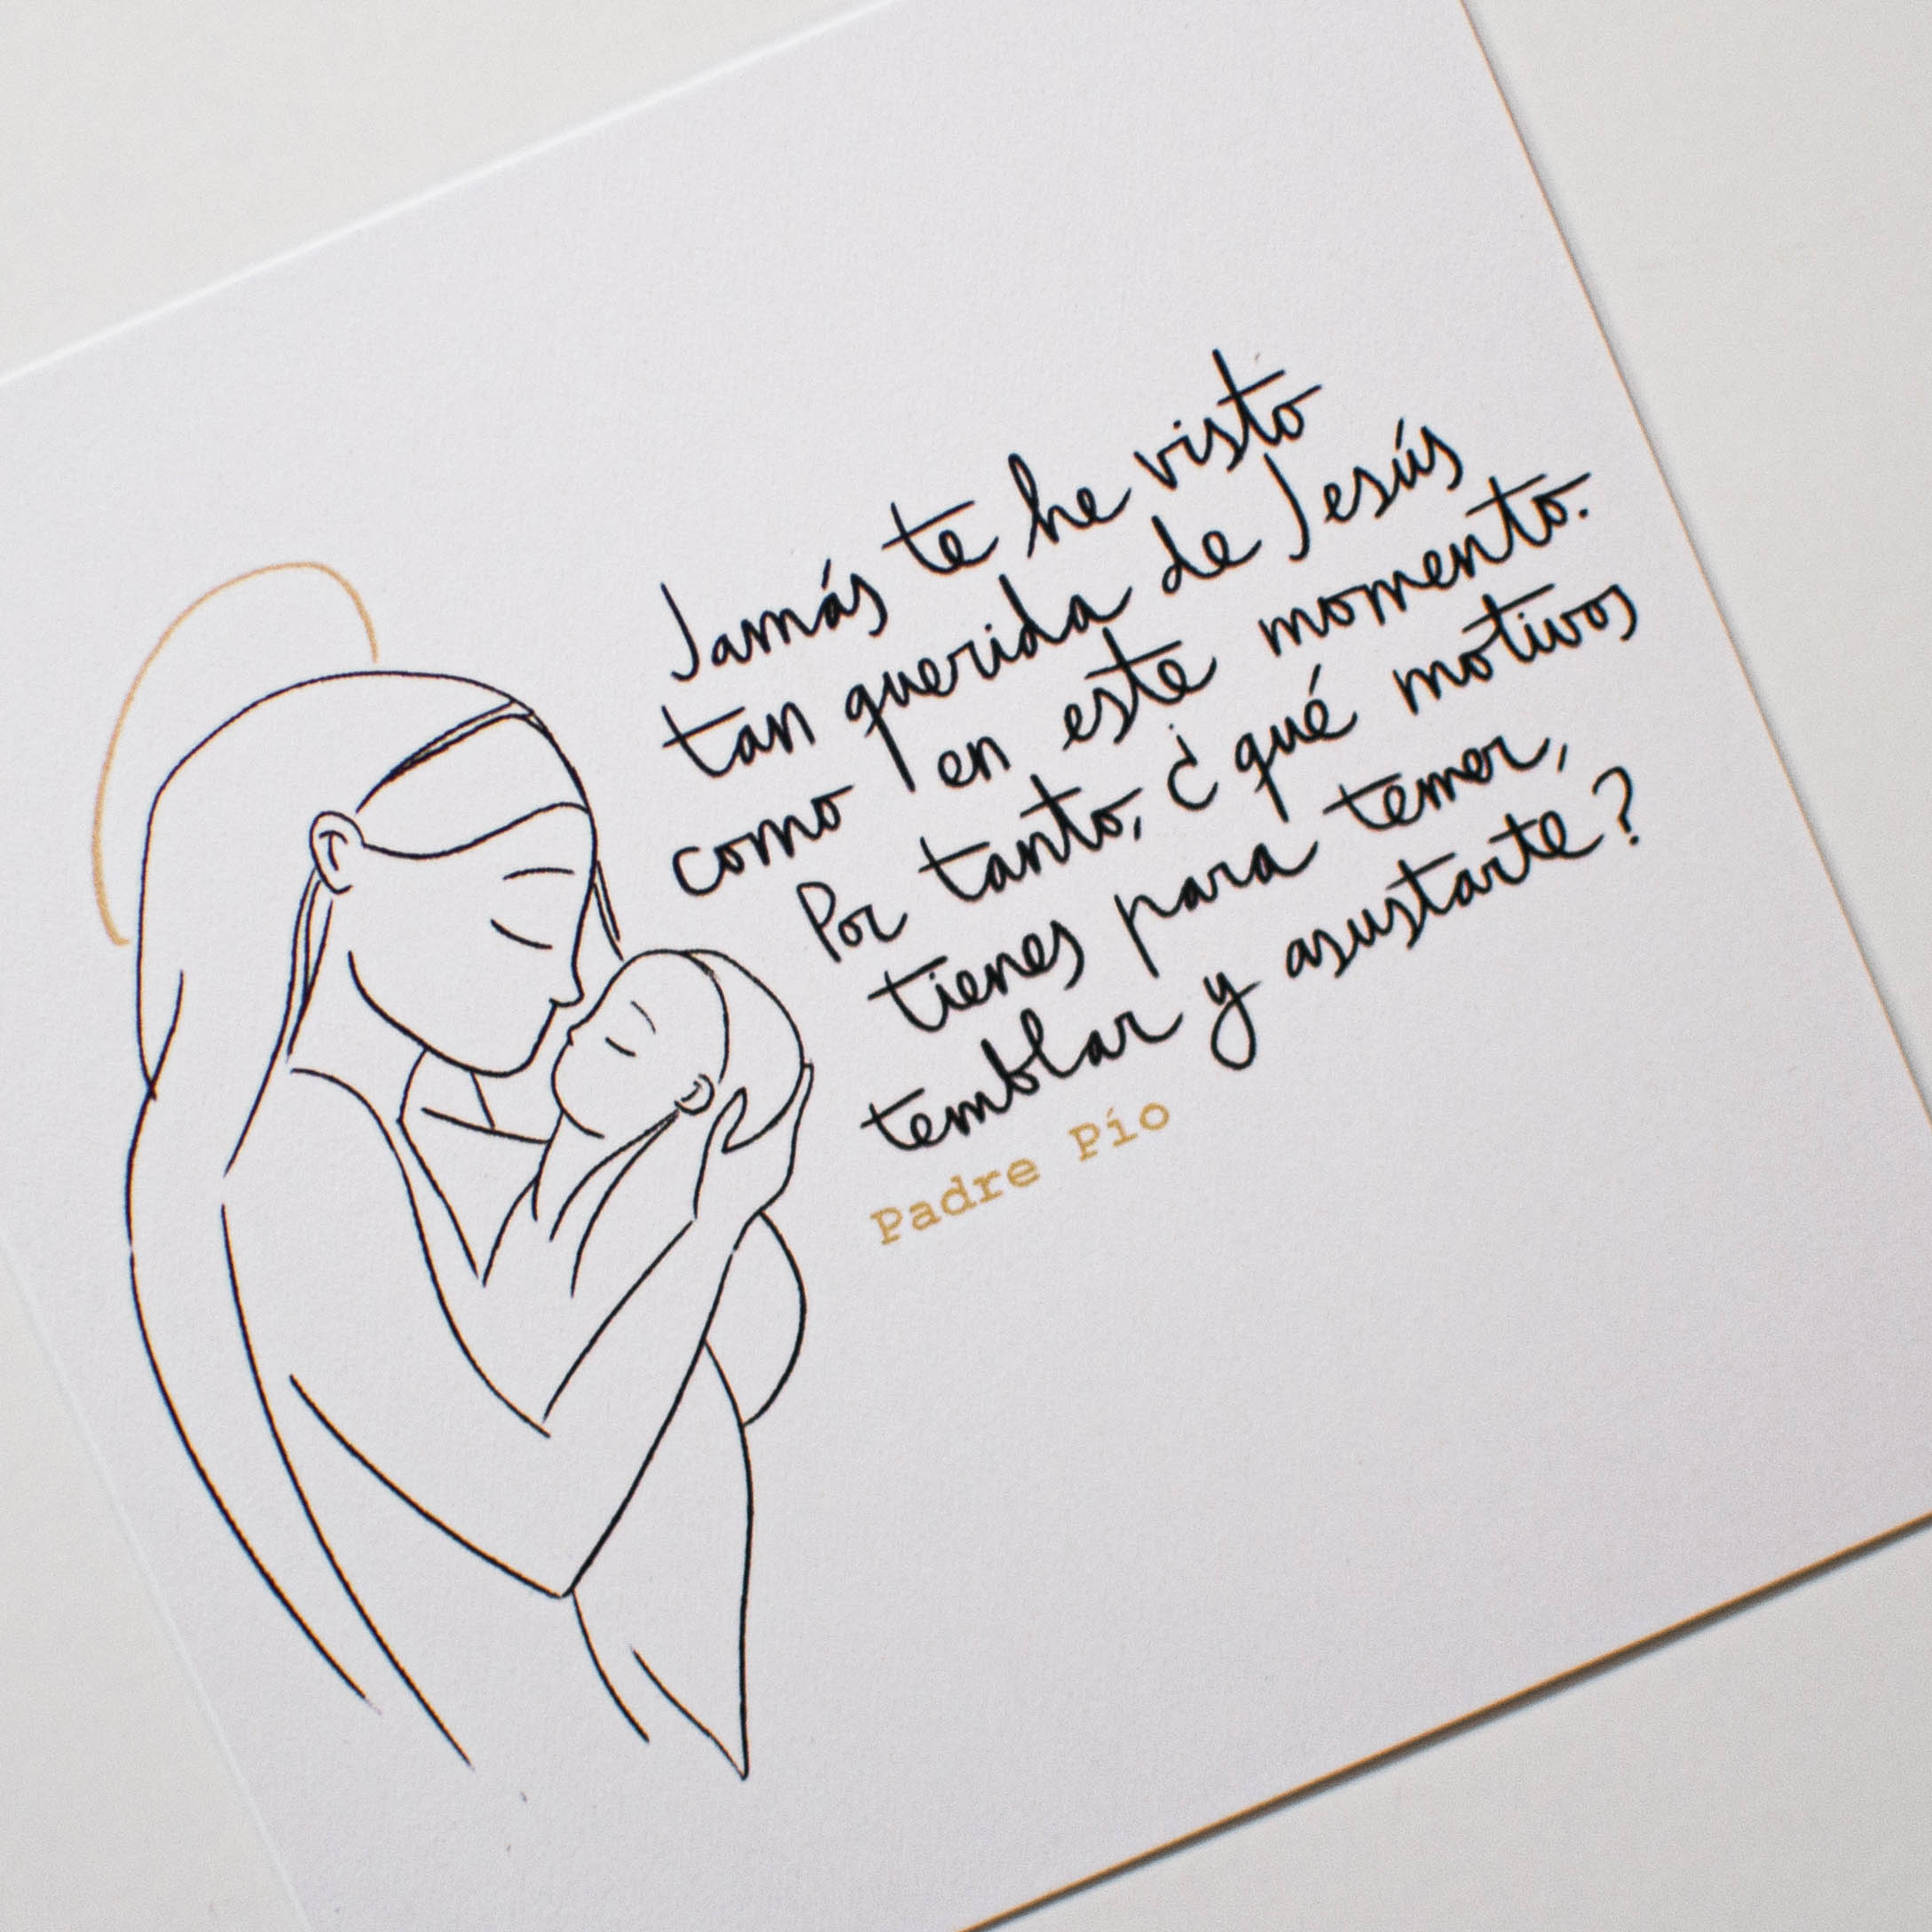 Jamás te he visto
tan querida de Jesús
como en este momento.
Por tanto, ¿qué motivos
tienes para temer,
temblar y asustarte?
Padre Pío